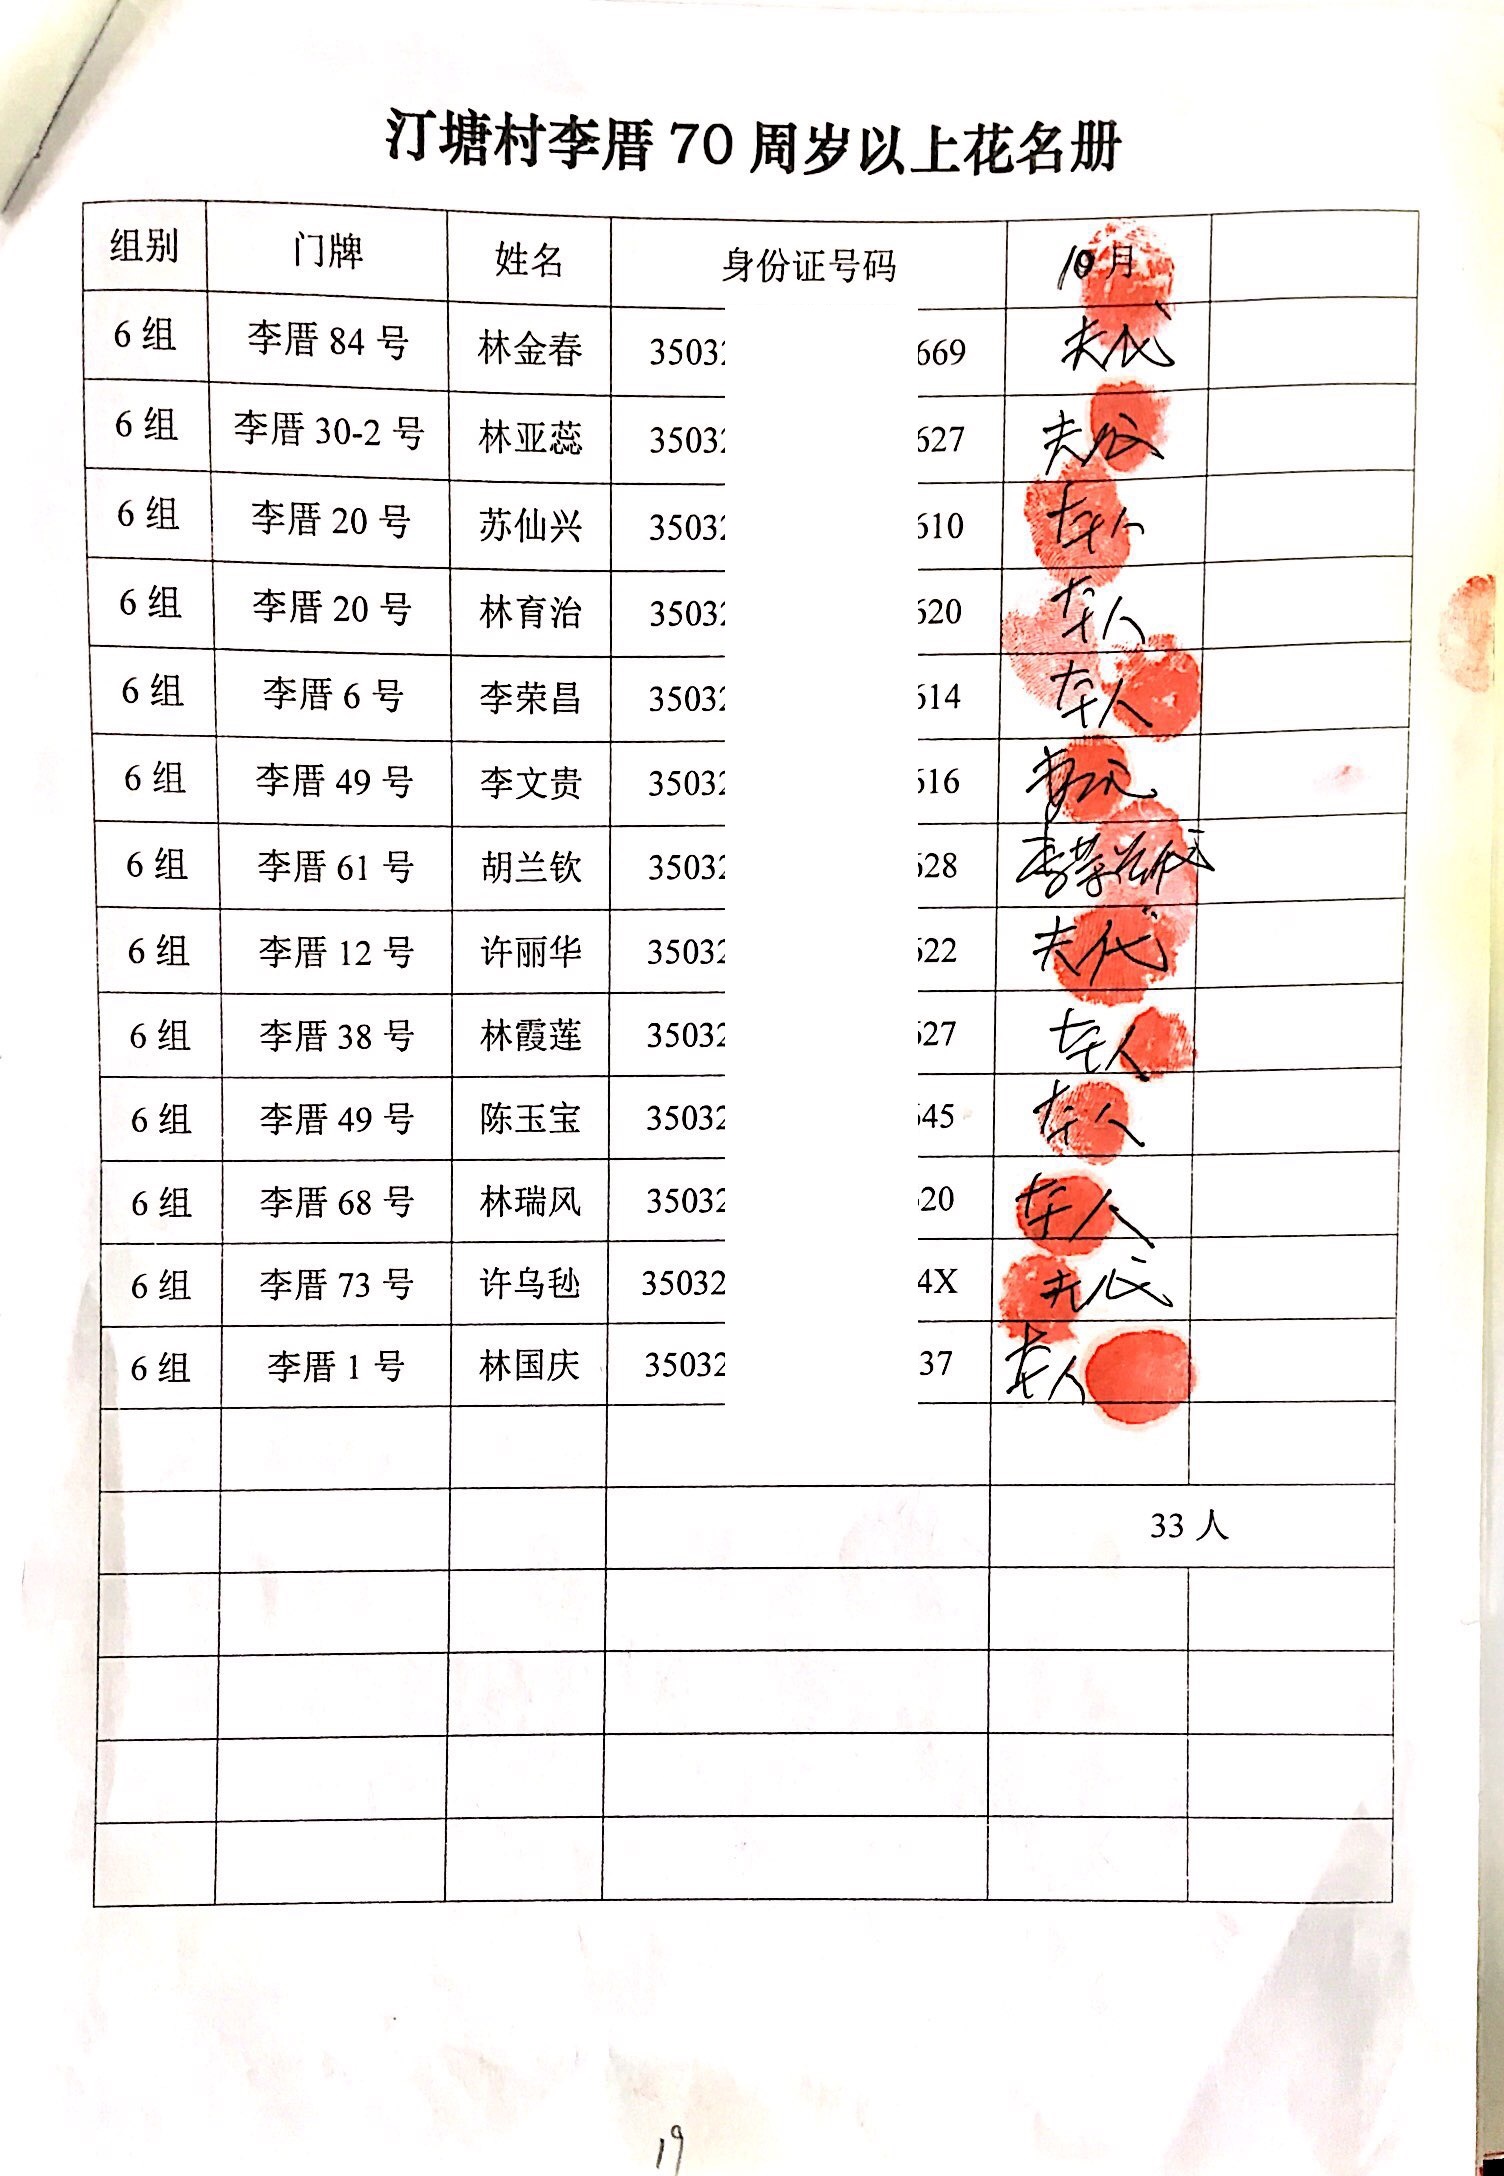 汀塘村李厝 70 周岁以上花名册
组别 门牌 姓名 身份证号码 10月
6 组 李厝 84 号 林金春 35032 669 夫代
6 组 李厝 30-2 号 林亚蕊 35032 627 夫代
6 组 李厝 20 号 苏仙兴 35032 610 本人
6 组 李厝 20 号 林育治 35032 620 本人
6 组 李厝 6 号 李荣昌 35032 614 本人
6 组 李厝 49 号 李文贵 35032 616 妻代
6 组 李厝 61 号 胡兰钦 35032 628
6 组 李厝 12 号 许丽华 35032 622 夫代
6 组 李厝 38 号 林霞莲 35032 627 本人
6 组 李厝 49 号 陈玉宝 35032 645 本人
6 组 李厝 68 号 林瑞风 35032 20 本人
6 组 李厝 73 号 许乌毜 35032 4X 夫代
6 组 李厝 1 号 林国庆 35032 37 本人
33 人
19